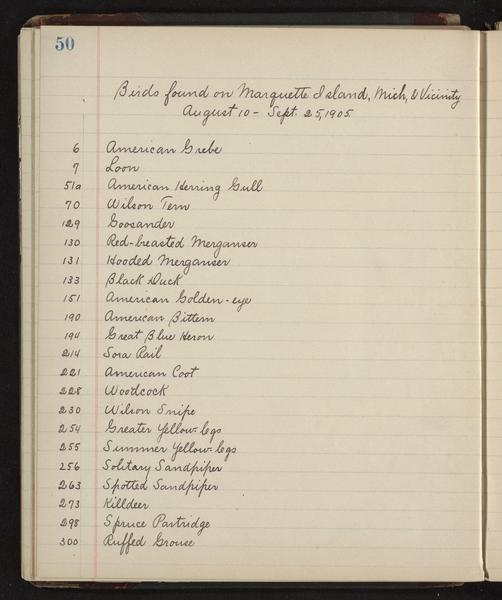 50
Birds found on Marquette Island, Mich, & Vicinity
August 10 - Sept. 25, 1905
6 American Grebe
7 Loon
51a American Herring Gull
70 Wilson Tern
129 Goosander
130 Red-breasted Merganser
131 Hooded Merganser
133 Black Duck
151 American Golden-eye
190 American Bittern
194 Great Blue Heron
214 Sora Rail
221 American Coot
228 Woodcock
230 Wilson Snipe
254 Greater Yellow-legs
255 Summer Yellow-legs
256 Solitary Sandpiper
263 Spotted Sandpiper
273 Killdeer
298 Spruce Partridge
300 Ruffed Grouse